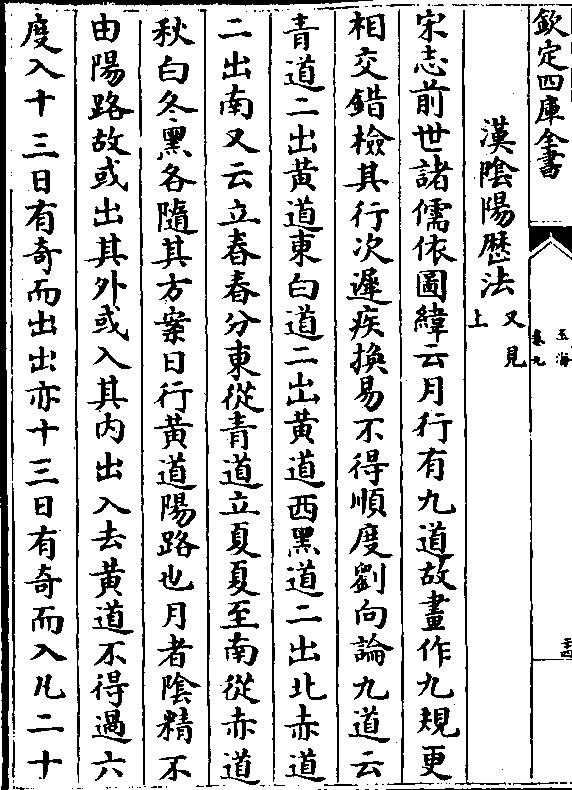 欽定四庫全書
玉海
卷九
漢陰陽歴法又見
上
宋志前世諸儒依圖緯云月行有九道故畫作九規更
相交錯檢其行次遲疾換易不得順度劉向論九道云
青道二出黄道東白道二出黄道西黑道二出北赤道
二出南又云立春春分東從青道立夏夏至南從赤道
秋白冬黑各隨其方案日行黄道陽路也月者陰精不
由陽路故或出其外或入其内出入去黄道不得過六
度入十三日有奇而出出亦十三日有奇而入凡二十